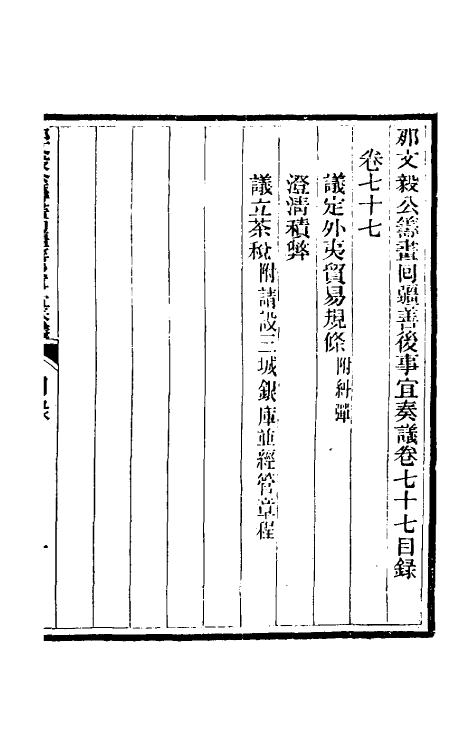 那文毅公籌畫回疆善後事宜奏議卷七十七目錄
卷七十七
議定外夷貿易規條附糾彈
澄清積弊
議立茶稅附請設三城銀庫並經管章程
目錄
一